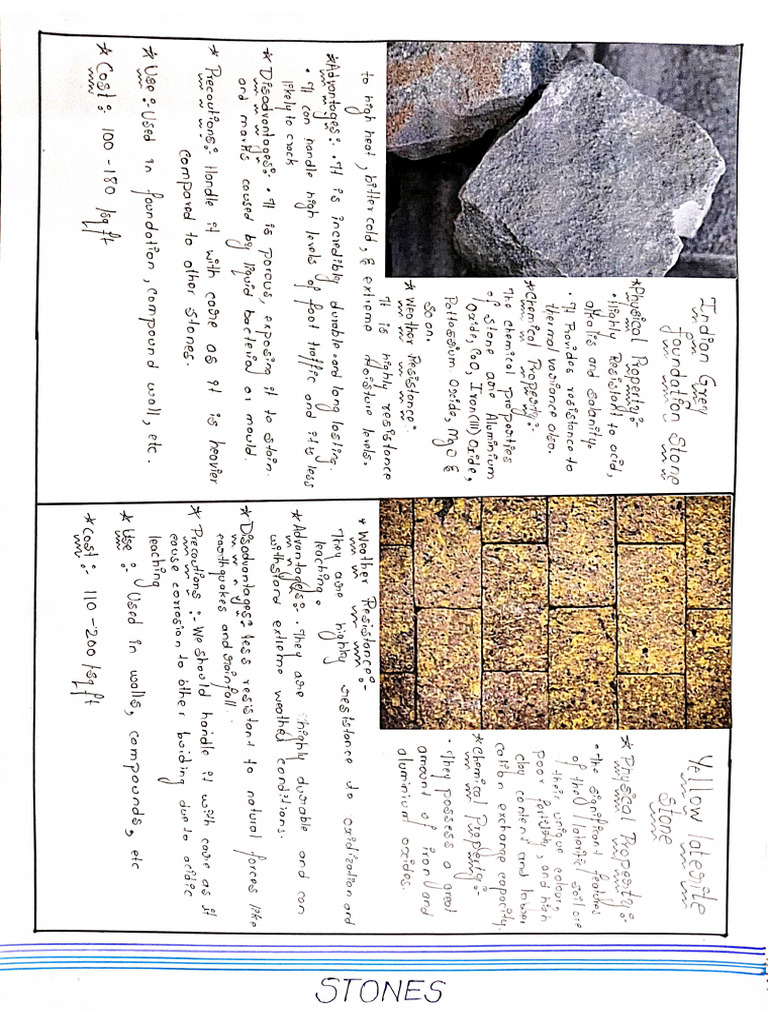 Indian Grey
foundation Stone
*Physical Property:-
• Highly Resistant to acid,
alkalis and salanity.
• It Provides resistance to
thermal variance also.
*Chemical Property:-
The chemical properties
of stone are Aluminium
Oxide, CaO, Iron (III) Oxide,
Pottassium Oxide, MgO &
soon.
*Weather Resistance:-
It is highly resistance
to high heat, bitter cold, & extreme moisture levels.
*Advantages:- • It is incredibly durable and long lasting.
• It can handle high levels of foot traffic and it is less
likely to crack
*Disadvantages:- • It is porous, exposing it to stain
and marks caused by liquid bacteria or mould.
*Precautions:- Handle it with care as it is heavier
compared to other stones.
*Use:- Used in foundation, compound wall, etc.
*Cost:- 100-180 /sq ft
Yellow laterite
Stone
*Physical Property:-
• The significant features
of the lateritic soil are
their unique colour,
poor fertility, and high
clay content and lower
cation exchange capacity.
*Chemical Property:-
• They possess a great
amount of iron and
aluminium oxides.
* Weather Resistance:-
They are highly resistance to oxidization and
leaching.
*Advantages:- • They are highly durable and can
withstand extreme weather conditions.
*Disadvantages:- less resistant to natural forces like
earthquakes and rainfall.
*Precautions:- We should handle it with care as it
cause corrosion to other building due to acidic
leaching
*Use:- Used in walls, compounds, etc
*Cost:- 110-200 /sq ft
STONES